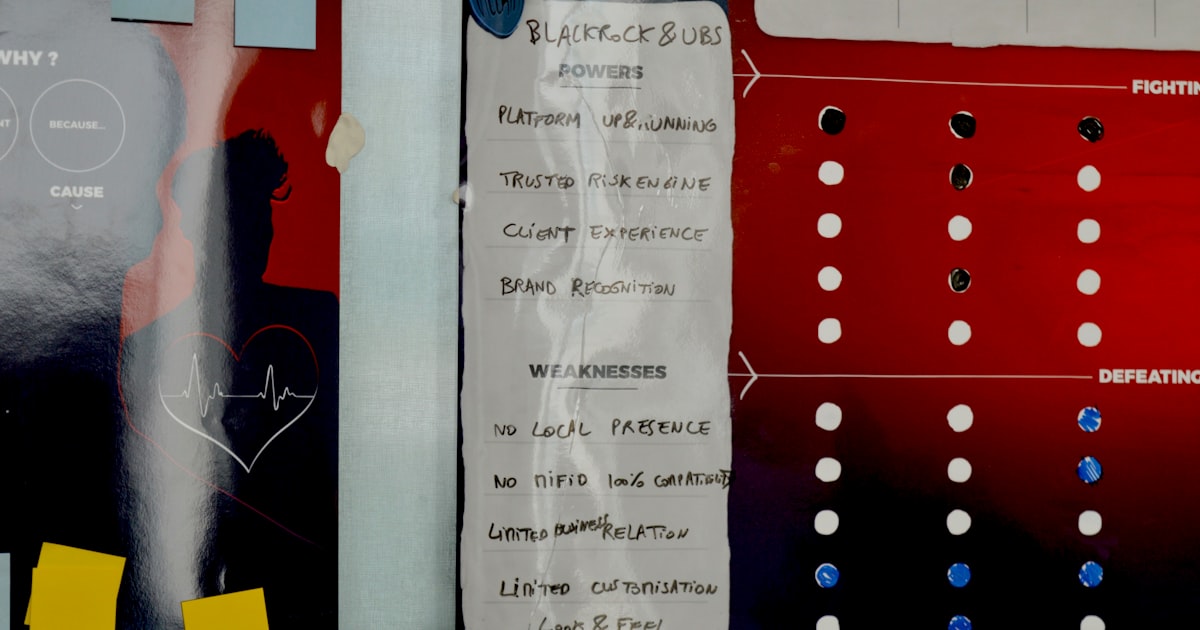 WHY ?
BECAUSE...
CAUSE
BLACKROCK & UBS
POWERS
PLATFORM UP & RUNNING
TRUSTED RISK ENGINE
CLIENT EXPERIENCE
BRAND RECOGNITION
WEAKNESSES
NO LOCAL PRESENCE
NO MIFID 100% COMPATIBILITY
LIMITED BUSINESS RELATION
LIMITED CUSTOMISATION
LOOK & FEEL
FIGHTIN
DEFEATING